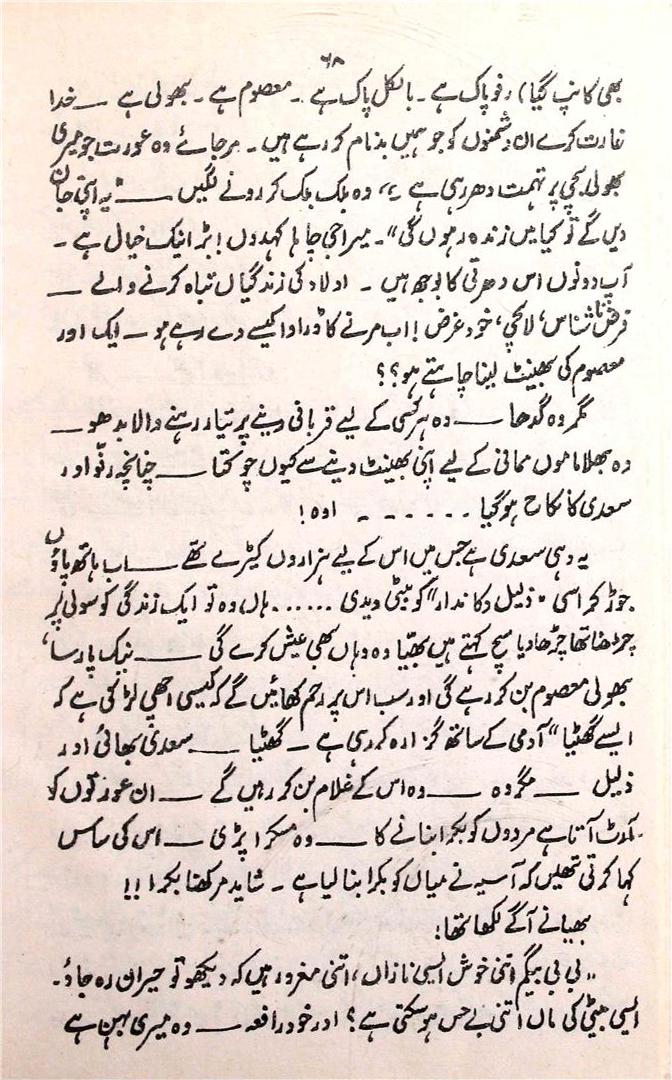 ۶۸
بھی کانپ گیا) رفو پاک ہے ۔ بالکل پاک ہے ۔ معصوم ہے ۔ بھولی ہے ـــ خدا
غارت کرے ان دشمنوں کو جو ہمیں بدنام کر رہے ہیں ۔ مر جائے وہ عورت جو میری
بھولی بچی پر تہمت دھر رہی ہے ،، وہ بلک بلک کر رونے لگیں ـــ " یہ اپنی جان
دیں گے تو کیا میں زندہ رہوں گی" ۔ میرا جی چاہا کہدوں ! بڑا نیک خیال ہے ۔
آپ دونوں اس دھرتی کا بوجھ ہیں ۔ اولاد کی زندگیاں تباہ کرنے والے ـــ
فرض ناشناس، لالچی، خود غرض ! اب مرنے کا ڈراوا کیسے دے رہے ہو ۔ ایک اور
معصوم کی بھینٹ لینا چاہتے ہو؟؟
مگر وہ گدھا ـــ وہ ہر کسی کے لیے قربانی دینے پر تیار رہنے والا بدھو ـــ
وہ بھلا ماموں ممانی کے لیے اپنی بھینٹ دینے سے کیوں چوکتا ـــ چنانچہ رفّو اور
سعدی کا نکاح ہو گیا ۔ ۔ ۔ ۔ ۔ ۔ اوہ !
یہ وہی سعدی ہے جس میں اس کے لیے ہزاروں کیڑے تھے ـــ اب ہاتھ پاؤں
جوڑ کر اسی "ذلیل دکاندار" کو بیٹی دیدی ...... ہاں وہ تو ایک زندگی کو سولی پر
چڑھنا تھا چڑھا دیا سچ کہتے ہیں بھیّا وہ وہاں بھی عیش کرے گی ـــ نیک پارسا،
بھولی معصوم بن کر رہے گی اور سب اس پر رحم کھائیں گے کہ کیسی اچھی لڑکی ہے کہ
ایسے گھٹیا" آدمی کے ساتھ گزارہ کر رہی ہے ـــ گھٹیا ـــ سعدی بھائی اور
ذلیل ـــ مگر وہ ـــ وہ اس کے غلام بن کر رہیں گے ـــ ان عورتوں کو
آرٹ آتا ہے مردوں کو بکرا بنانے کا ـــ وہ مسکرا پڑی ـــ اس کی ساس
کہا کرتی تھیں کہ آسیہ نے میاں کو بکرا بنا لیا ہے ۔ شاید مرکھنا بکرا !!
بھیا نے آگے لکھا تھا :
,, بی بی بیگم اتنی خوش ایسی نازاں، اتنی مغرور ہیں کہ دیکھو تو حیران رہ جاؤ ۔
ایسی بیٹی کی ماں اتنی بے حس ہو سکتی ہے ؟ اور خود رافعہ ـــ وہ میری بہن ہے